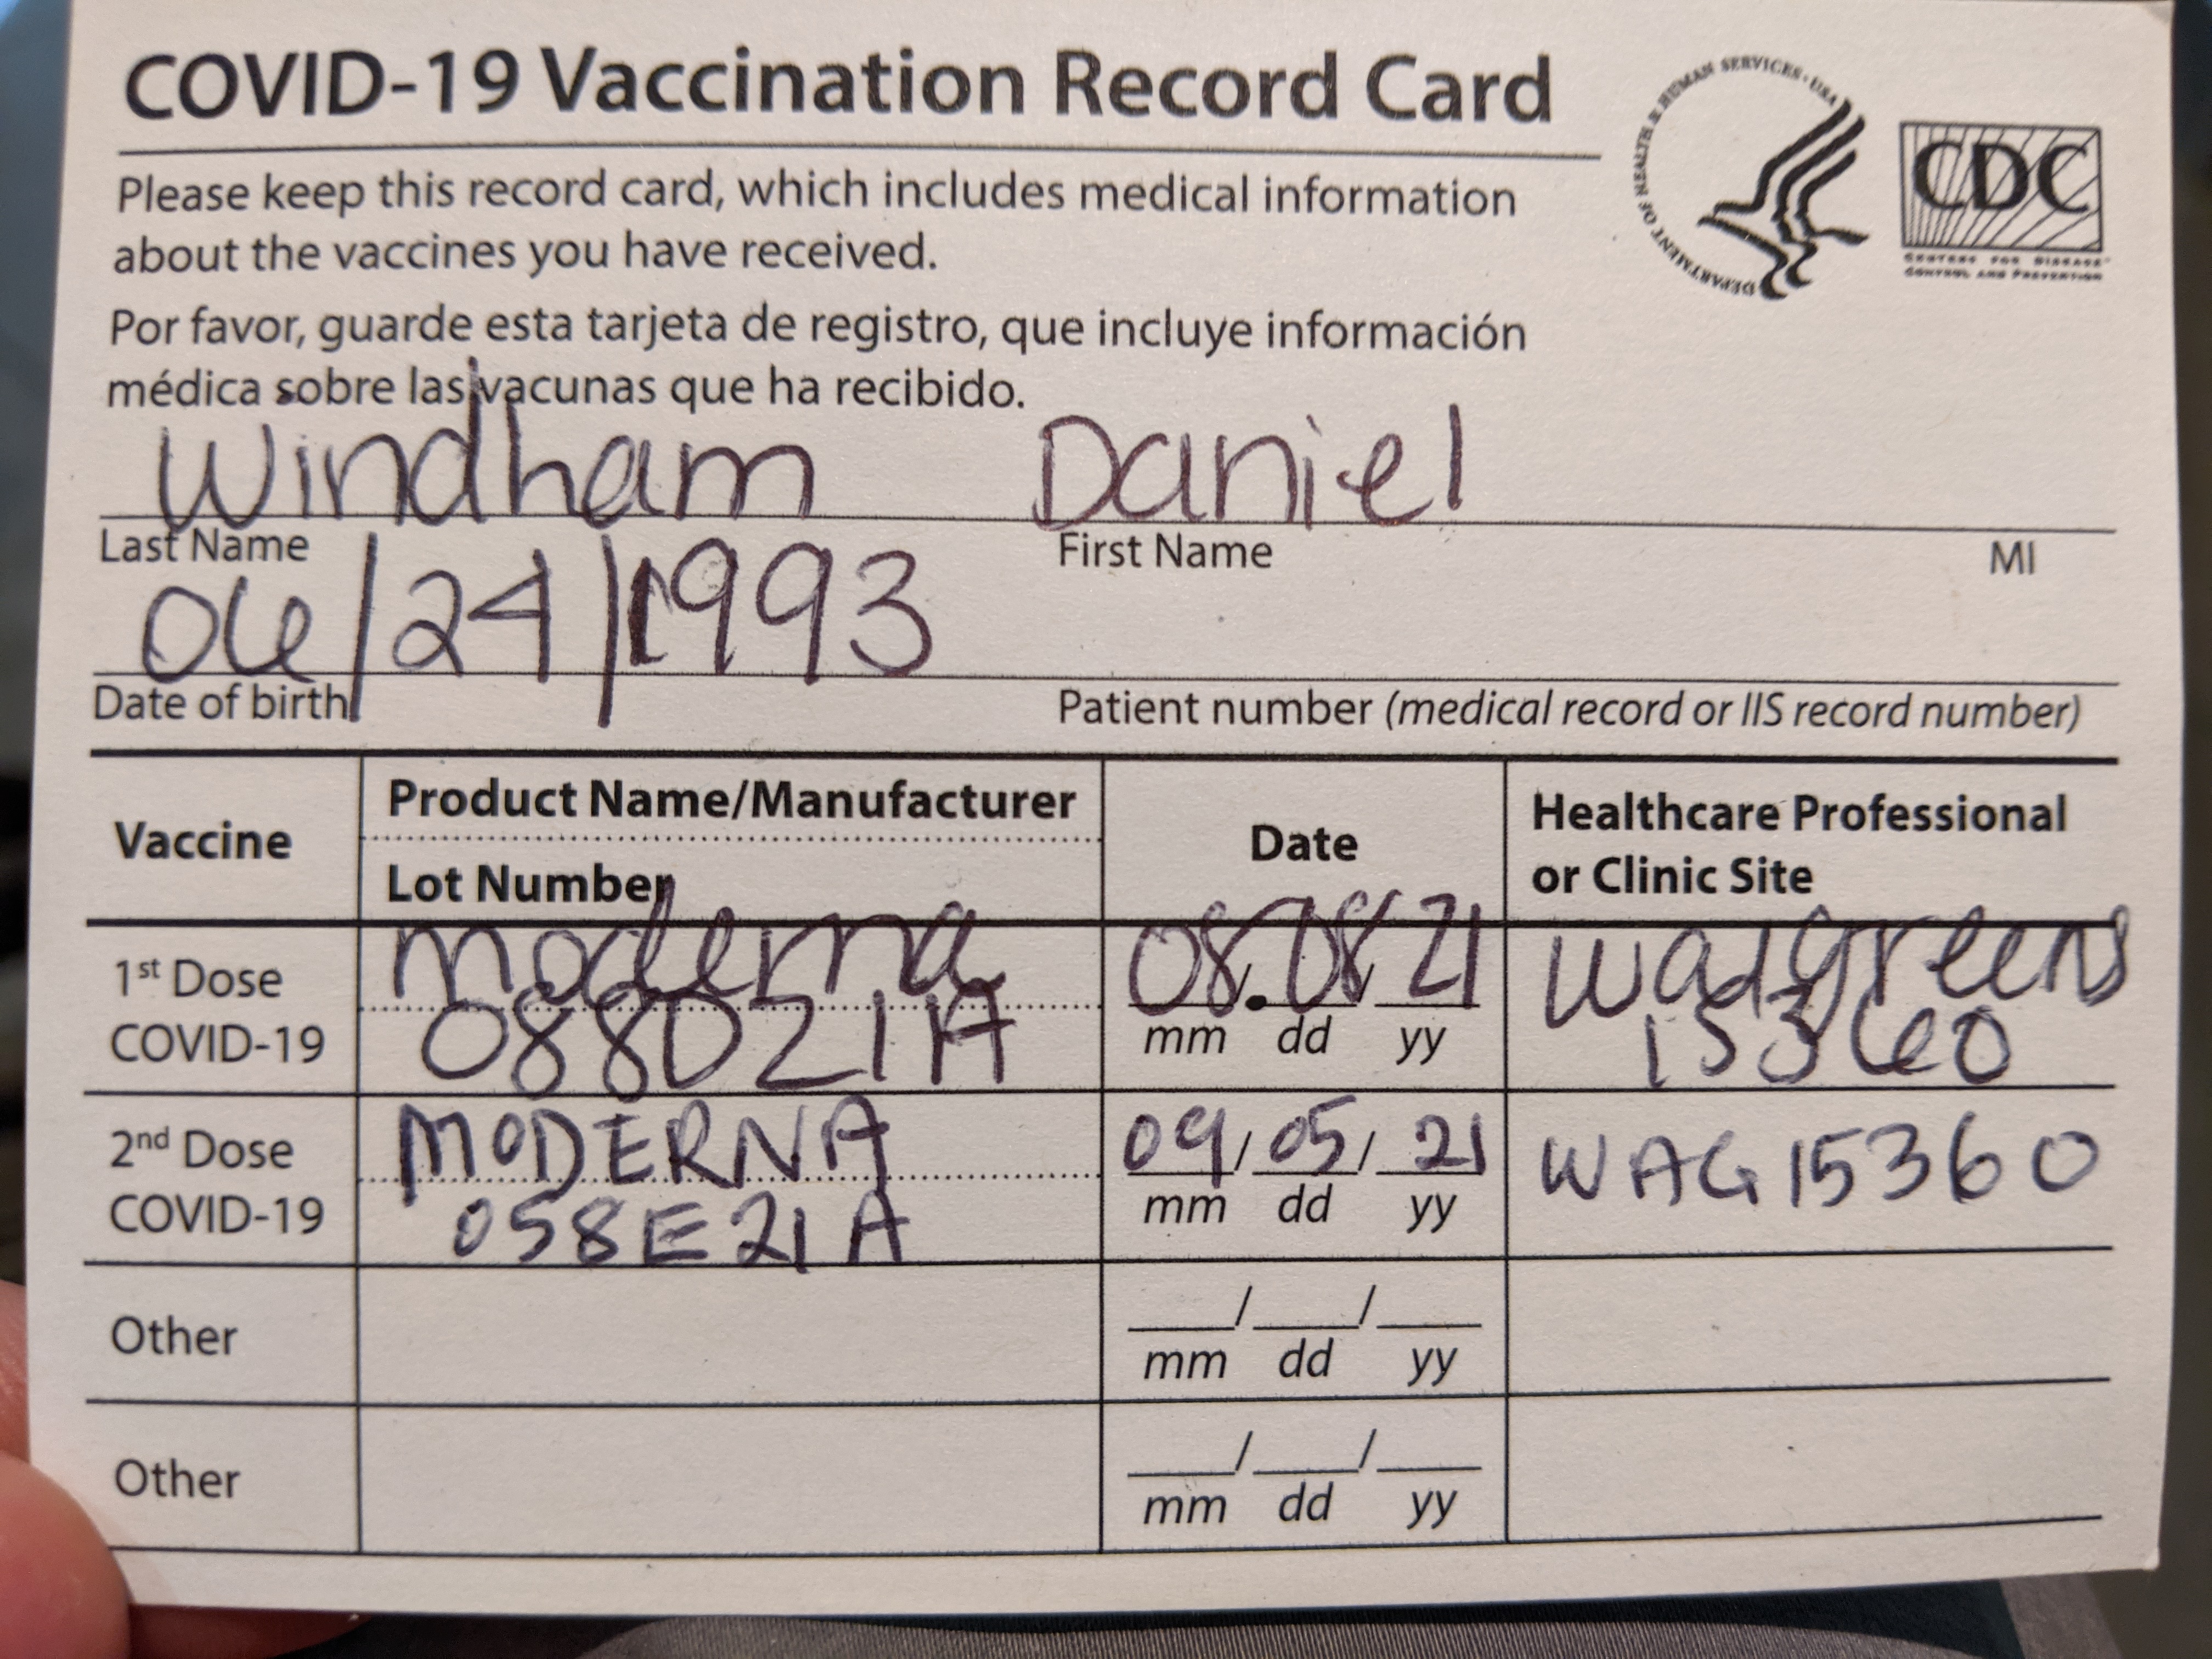 COVID-19 Vaccination Record Card
DEPARTMENT OF HEALTH & HUMAN SERVICES · USA
CDC
CENTERS FOR DISEASE
CONTROL AND PREVENTION
Please keep this record card, which includes medical information
about the vaccines you have received.
Por favor, guarde esta tarjeta de registro, que incluye información
médica sobre las vacunas que ha recibido.
Windham Daniel
Last Name First Name MI
06/24/1993
Date of birth Patient number (medical record or IIS record number)
Vaccine Product Name/Manufacturer Date Healthcare Professional
Lot Number or Clinic Site
1st Dose moderna 08.08/21 Walgreens
COVID-19 088D21A mm dd yy 15360
2nd Dose MODERNA 09/05/21 WAG15360
COVID-19 058E21A mm dd yy
Other ___/___/___
mm dd yy
Other ___/___/___
mm dd yy